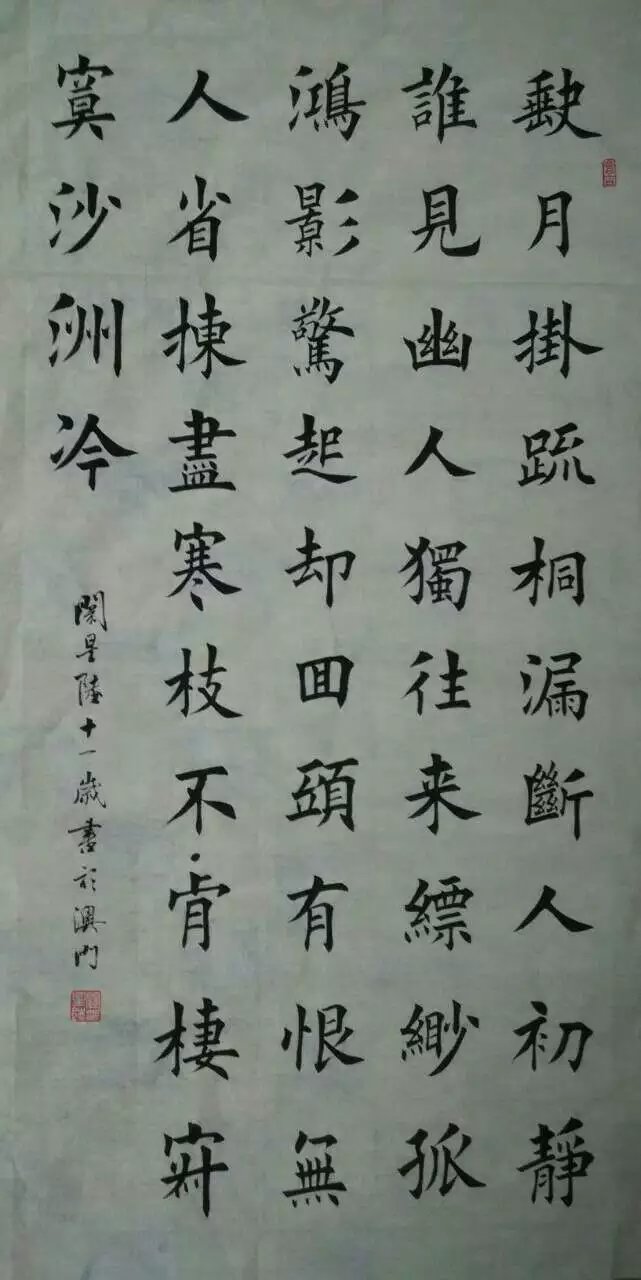 缺月掛疏桐漏斷人初靜
誰見幽人獨往来縹緲孤
鴻影驚起却回頭有恨無
人省揀盡寒枝不肯棲寂
寞沙洲冷
星陸十一歲書於澳門